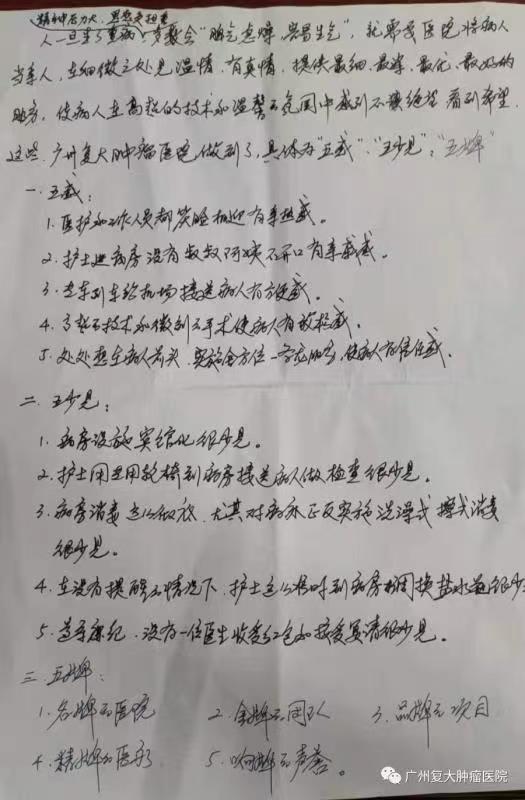 精神压力大、思想负担重
人一旦生了重病，多数会"脾气急燥、容易生气"，就需要医院将病人
当亲人，在细微之处见温情、有真情，提供最细、最准、最优、最好的
服务，使病人在高超的技术和温馨的氛围中感到不要绝望、看到希望。
这些，广州复大肿瘤医院做到了，具体为"五感"、"五少见"、"五牌"
一、五感：
1. 医护和工作人员都笑脸相迎有亲热感。
2. 护士进病房没有叔叔阿姨不开口有亲戚感。
3. 专车到车站机场接送病人有方便感。
4. 高超的技术和微创的手术使病人有放松感。
5. 处处想在病人前头，实施全方位一条龙服务，使病人有信任感。
二、五少见：
1. 病房设施宾馆化很少见。
2. 护士用専用轮椅到病房接送病人做检查很少见。
3. 病房消毒这么彻底，尤其对病床正反实施洗澡式擦式消毒
很少见。
4. 在没有提醒的情况下，护士这么准时到病房调换盐水瓶很少
5. 遵守廉纪，没有一位医生收受红包和接受宴请很少见。
三、五牌：
1. 名牌的医院 2. 金牌的团队 3. 品牌的项目
4. 精牌的医术 5. 响牌的声誉。
广州复大肿瘤医院